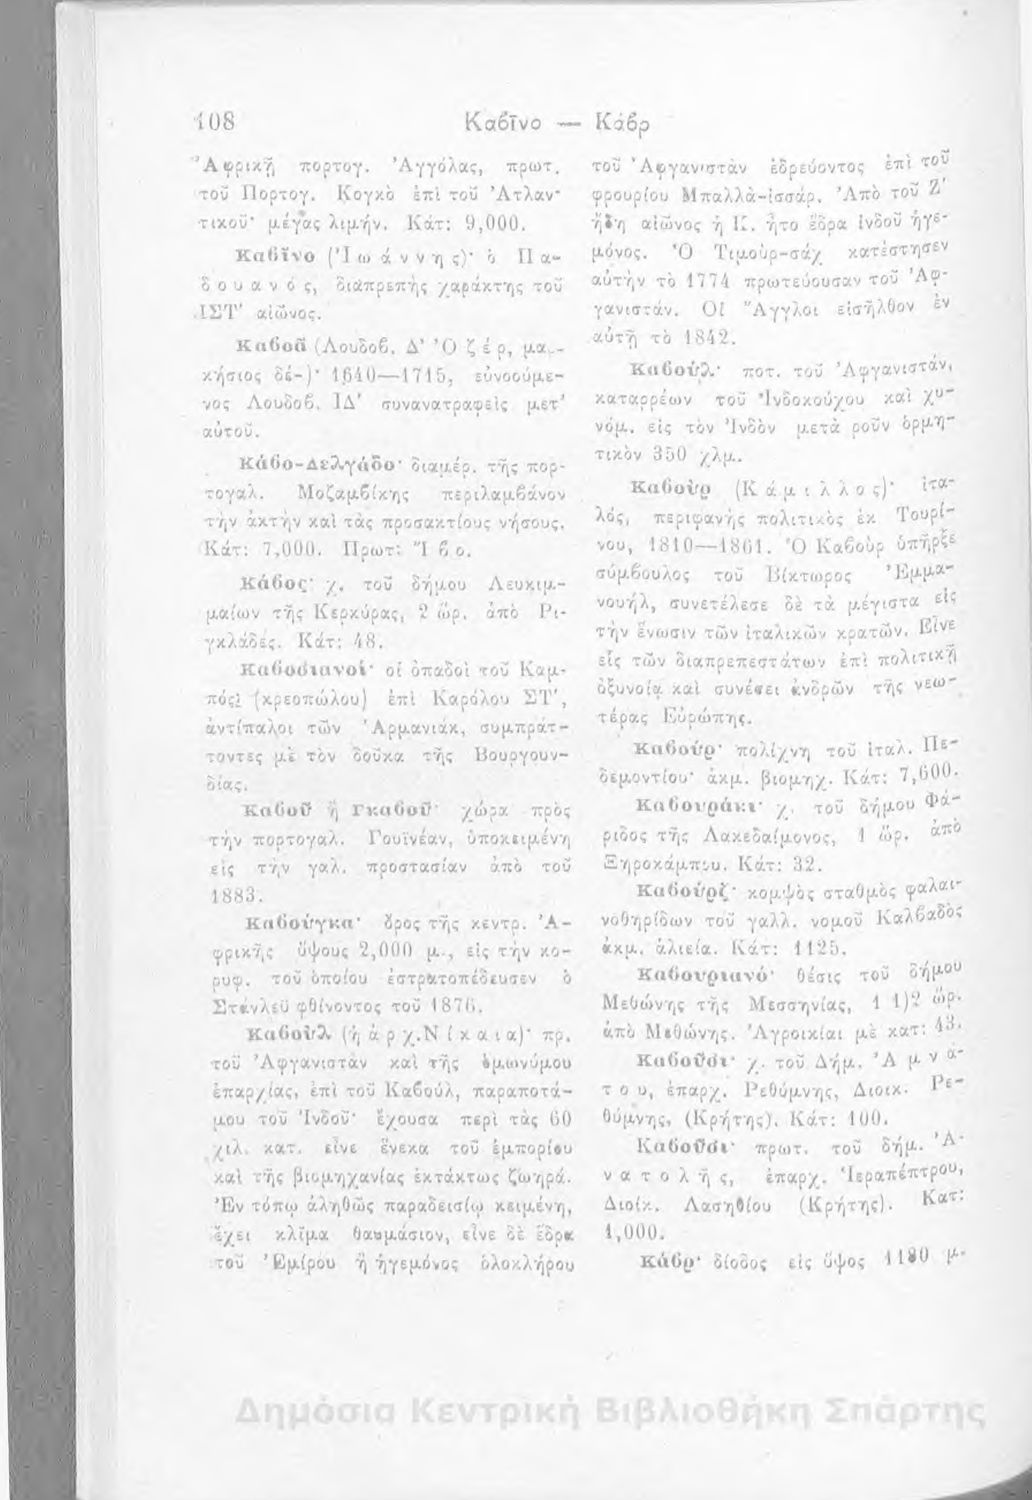 108 Καβῖνο — Κάβρ
Ἀφρικῇ πορτογ. Ἀγγόλας, πρωτ.
τοῦ Πορτογ. Κογκὸ ἐπὶ τοῦ Ἀτλαν-
τικοῦ· μέγας λιμήν. Κάτ: 9,000.
Καβῖνο (Ἰωάννης)· ὁ Πα-
δουανός, διαπρεπὴς χαράκτης τοῦ
ΙΣΤ′ αἰῶνος.
Καβοᾶ (Λουδοβ. Δ′ Ὀζέρ, μαρ-
κήσιος δὲ-)· 1640—1715, εὐνοούμε-
νος Λουδοβ. ΙΔ′ συνανατραφεὶς μετ'
αὐτοῦ.
Κάβο-Δελγάδο· διαμέρ. τῆς πορ-
τογαλ. Μοζαμβίκης περιλαμβάνον
τὴν ἀκτὴν καὶ τὰς προσακτίους νήσους.
Κάτ: 7,000. Πρωτ: Ἴβο.
Κάβος· χ. τοῦ δήμου Λευκιμ-
μαίων τῆς Κερκύρας, 2 ὥρ. ἀπὸ Ρι-
γκλάδες. Κάτ: 48.
Καβοσιανοί· οἱ ὀπαδοὶ τοῦ Καμ-
πός; (κρεοπώλου) ἐπὶ Καρόλου ΣΤ′,
ἀντίπαλοι τῶν Ἀρμανιάκ, συμπράτ-
τοντες μὲ τὸν δοῦκα τῆς Βουργουν-
δίας.
Καβοῦ ἢ Γκαβοῦ· χώρα πρὸς
τὴν πορτογαλ. Γουϊνέαν, ὑποκειμένη
εἰς τὴν γαλ. προστασίαν ἀπὸ τοῦ
1883.
Καβούγκα· ὄρος τῆς κεντρ. Ἀ-
φρικῆς ὕψους 2,000 μ., εἰς τὴν κο-
ρυφ. τοῦ ὁποίου ἐστρατοπέδευσεν ὁ
Στάνλεϋ φθίνοντος τοῦ 1876.
Καβοὺλ (ἡ ἀρχ. Νίκαια)· πρ.
τοῦ Ἀφγανιστὰν καὶ τῆς ὁμωνύμου
ἐπαρχίας, ἐπὶ τοῦ Καβούλ, παραποτά-
μου τοῦ Ἰνδοῦ· ἔχουσα περὶ τὰς 60
χιλ. κατ. εἶνε ἕνεκα τοῦ ἐμπορίου
καὶ τῆς βιομηχανίας ἐκτάκτως ζωηρά.
Ἐν τόπῳ ἀληθῶς παραδεισίῳ κειμένη,
ἔχει κλῖμα θαυμάσιον, εἶνε δὲ ἕδρα
τοῦ Ἐμίρου ἢ ἡγεμόνος ὁλοκλήρου
τοῦ Ἀφγανιστὰν ἑδρεύοντος ἐπὶ τοῦ
φρουρίου Μπαλλὰ-ἱσσάρ. Ἀπὸ τοῦ Ζ′
ἤδη αἰῶνος ἡ Κ. ἦτο ἕδρα ἰνδοῦ ἡγε-
μόνος. Ὁ Τιμοὺρ-σὰχ κατέστησεν
αὐτὴν τὸ 1774 πρωτεύουσαν τοῦ Ἀφ-
γανιστάν. Οἱ Ἄγγλοι εἰσῆλθον ἐν
αὐτῇ τὸ 1842.
Καβούλ· ποτ. τοῦ Ἀφγανιστάν,
καταρρέων τοῦ Ἰνδοκούχου καὶ χυ-
νόμ. εἰς τὸν Ἰνδὸν μετὰ ροῦν ὁρμη-
τικὸν 350 χλμ.
Καβοὺρ (Κάμιλλος)· ἰτα-
λός, περιφανὴς πολιτικὸς ἐκ Τουρί-
νου, 1810—1861. Ὁ Καβοὺρ ὑπῆρξε
σύμβουλος τοῦ Βίκτωρος Ἐμμα-
νουήλ, συνετέλεσε δὲ τὰ μέγιστα εἰς
τὴν ἕνωσιν τῶν ἰταλικῶν κρατῶν. Εἶνε
εἷς τῶν διαπρεπεστάτων ἐπὶ πολιτικῇ
ὀξυνοίᾳ καὶ συνέσει ἀνδρῶν τῆς νεω-
τέρας Εὐρώπης.
Καβούρ· πολίχνη τοῦ ἰταλ. Πε-
δεμοντίου· ἀκμ. βιομηχ. Κάτ: 7,600.
Καβουράκι· χ. τοῦ δήμου Φά-
ριδος τῆς Λακεδαίμονος, 1 ὥρ. ἀπὸ
Ξηροκάμπου. Κάτ: 32.
Καβούρζ· κομψὸς σταθμὸς φαλαι-
νοθηρίδων τοῦ γαλλ. νομοῦ Καλβαδὸς
ἀκμ. ἁλιεία. Κάτ: 1125.
Καβουριανό· θέσις τοῦ δήμου
Μεθώνης τῆς Μεσσηνίας, 1 1)2 ὥρ.
ἀπὸ Μεθώνης. Ἀγροικίαι μὲ κατ: 43.
Καβοῦσι· χ. τοῦ Δήμ. Ἀμνά-
του, ἐπαρχ. Ρεθύμνης, Διοικ. Ρε-
θύμνης, (Κρήτης). Κάτ: 100.
Καβοῦσι· πρωτ. τοῦ δήμ. Ἀ-
νατολῆς, ἐπαρχ. Ἱεραπέπτρου,
Διοίκ. Λασηθίου (Κρήτης). Κατ:
1,000.
Κάβρ· δίοδος εἰς ὕψος 1180 μ.
Δημόσια Κεντρική Βιβλιοθήκη Σπάρτης